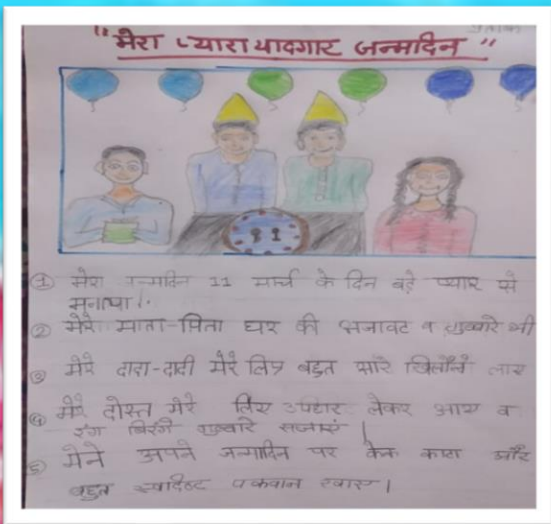 "मेरा प्यारा यादगार जन्मदिन"
११
① मेरा जन्मदिन 11 मार्च के दिन बड़े प्यार से
मनाया।
② मेरे माता-पिता घर की सजावट व गुब्बारे भी
③ मेरे दादा-दादी मेरे लिए बहुत सारे खिलौने लाए
④ मेरे दोस्त मेरे लिए उपहार लेकर आए व
रंग बिरंगे गुब्बारे सजाएं।
⑤ मैने अपने जन्मदिन पर केक काटा और
बहुत स्वादिष्ट पकवान खाए।